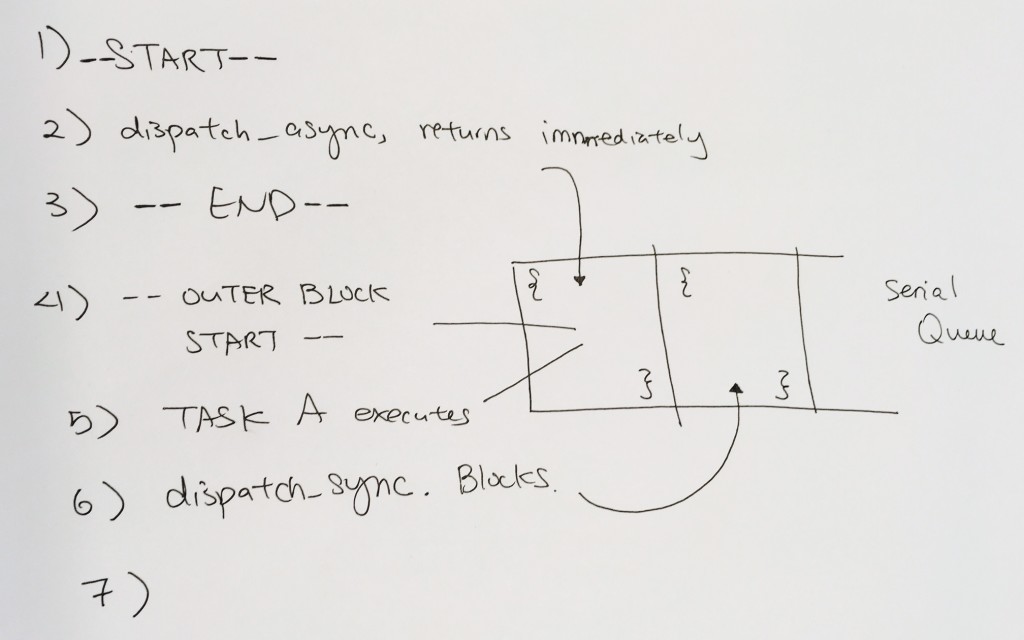 1) --START--
2) dispatch_async, returns immediately
3) -- END--
4) -- OUTER BLOCK
START --
{ } { }
Serial
Queue
5) TASK A executes
6) dispatch_sync. Blocks.
7)